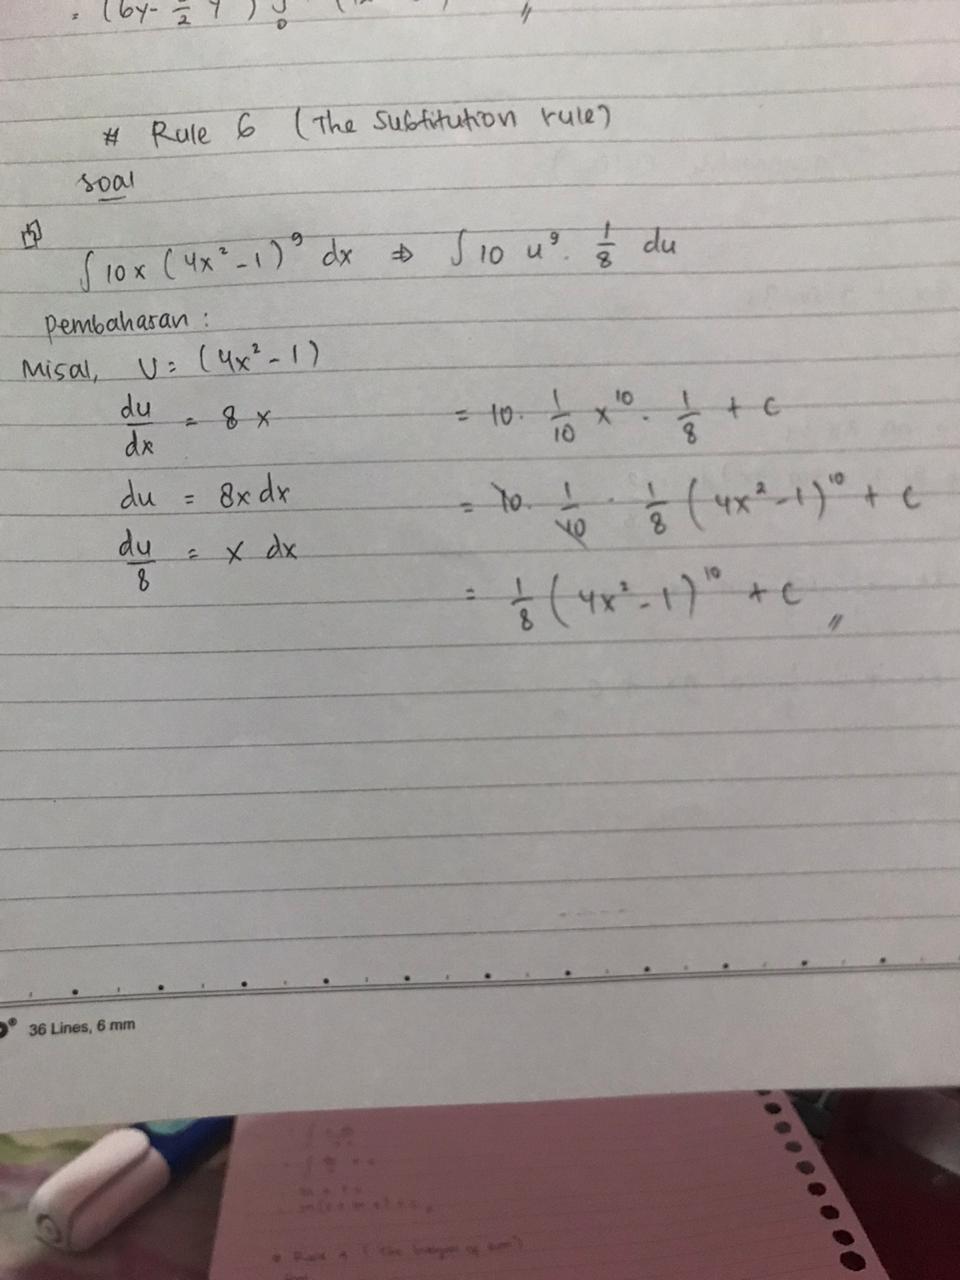 # Rule 6 (The Subtitution rule)
Soal
∫ 10x (4x² - 1)⁹ dx ⇒ ∫ 10 u⁹ . 1/8 du
Pembahasan :
Misal, U = (4x² - 1)
du/dx = 8x
du = 8x dx
du/8 = x dx
= 10 . 1/10 x¹⁰ . 1/8 + C
= 10 . 1/10 . 1/8 (4x² - 1)¹⁰ + C
= 1/8 (4x² - 1)¹⁰ + C //
36 Lines, 6 mm